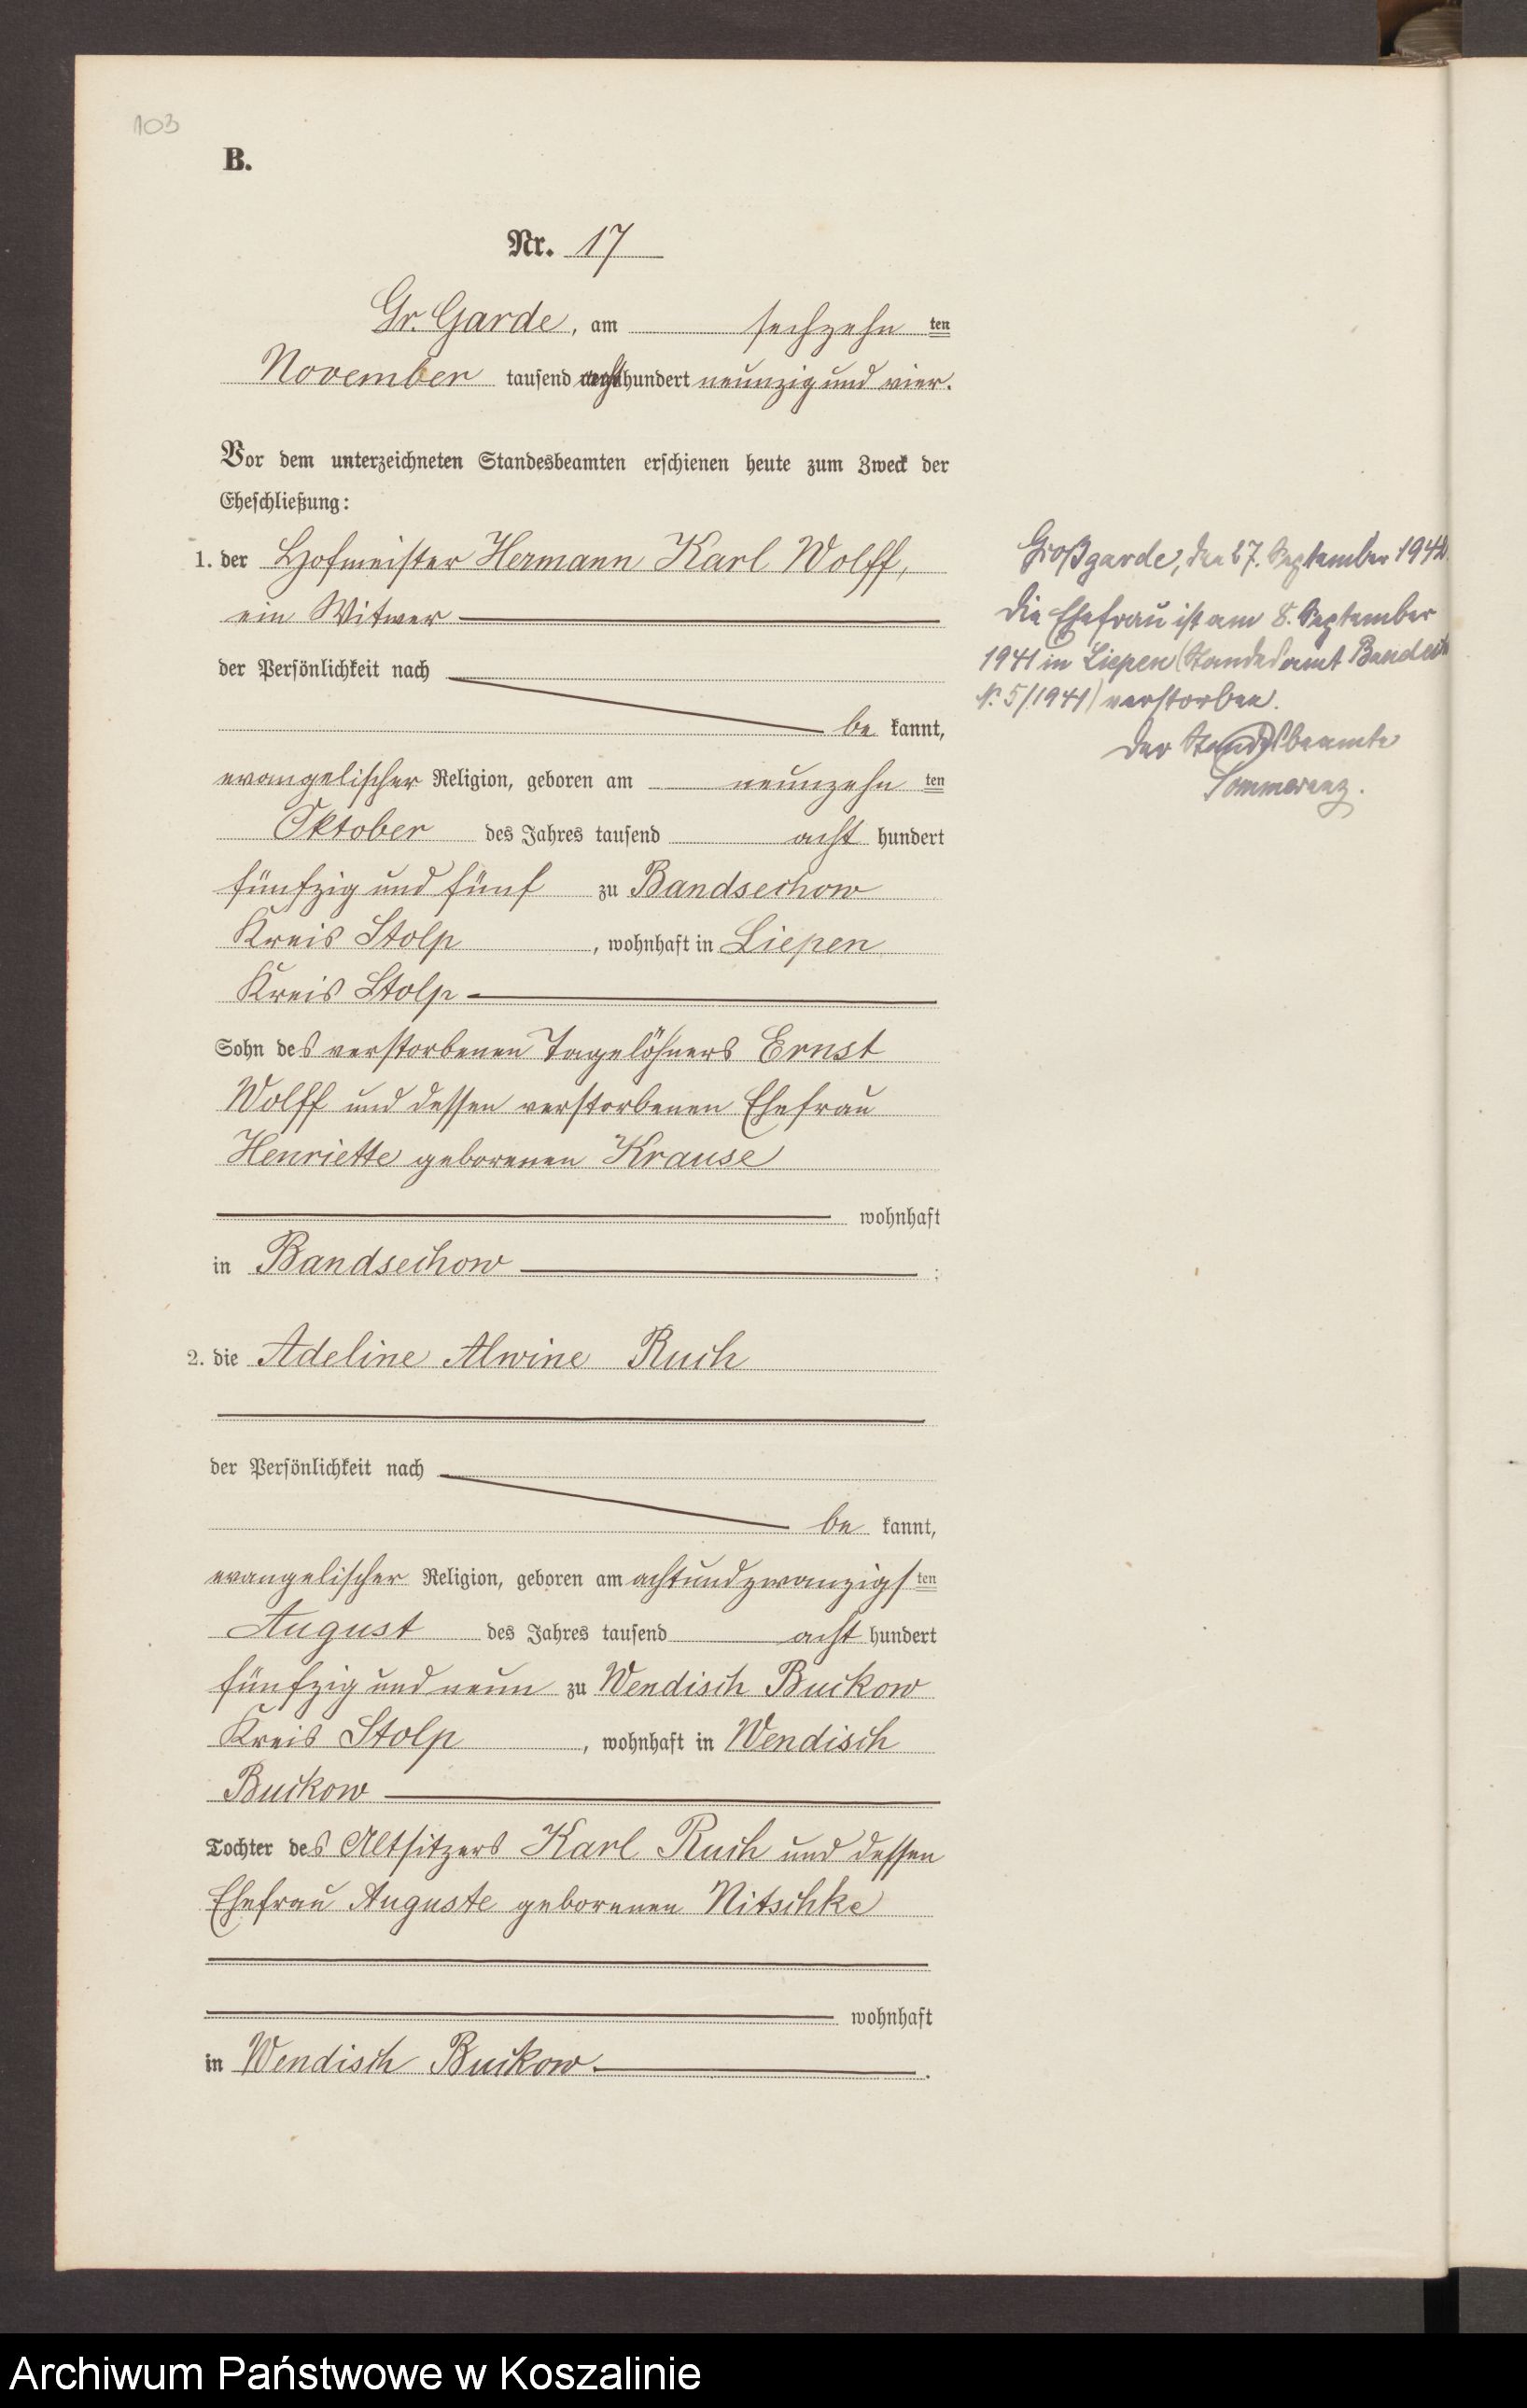 103
B.
Nr. 17
Gr. Garde, am sechzehn ten
November tausend acht hundert neunzig und vier.
Vor dem unterzeichneten Standesbeamten erschienen heute zum Zweck der
Eheschließung:
1. der Hofmeister Hermann Karl Wolff,
ein Witwer
der Persönlichkeit nach
be kannt,
evangelischer Religion, geboren am neunzehn ten
Oktober des Jahres tausend acht hundert
fünfzig und fünf zu Bandsechow
Kreis Stolp, wohnhaft in Liepen
Kreis Stolp
Sohn des verstorbenen Tagelöhners Ernst
Wolff und dessen verstorbenen Ehefrau
Henriette geborenen Krause
wohnhaft
in Bandsechow ;
2. die Adeline Alwine Ruch
der Persönlichkeit nach
be kannt,
evangelischer Religion, geboren am achtundzwanzigs ten
August des Jahres tausend acht hundert
fünfzig und neun zu Wendisch Buckow
Kreis Stolp, wohnhaft in Wendisch
Buckow
Tochter des Altsitzers Karl Ruch und dessen
Ehefrau Auguste geborenen Nitschke
wohnhaft
in Wendisch Buckow.
Großgarde, den 27. September
Die Ehefrau ist am 8. September
1941 in Liepen (Standesamt
N. 5/1941) verstorben.
Der Standesbeamte
Archiwum Państwowe w Koszalinie